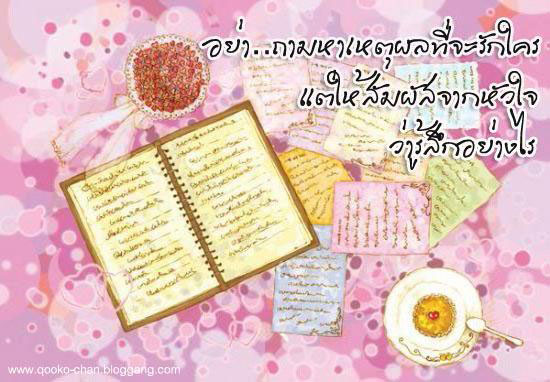 อย่า..ถามหาเหตุผลที่จะรักใคร
แต่ให้สัมผัสจากหัวใจ
ว่ารู้สึกอย่างไร
www.qooko-chan.bloggang.com